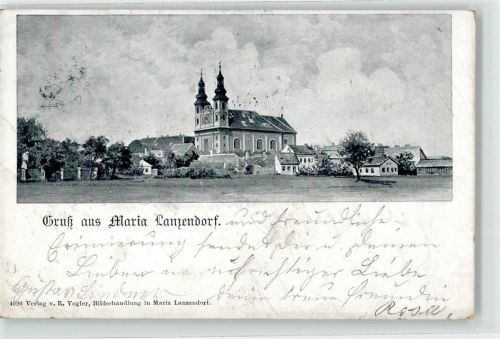 Gruß aus Maria Lanzendorf. und freundliche
Erinnerung sendet Dir, Deinen
Lieben in aufrichtiger Liebe
deine treue Freundin
Rosa
4020 Verlag v. R. Vogler, Bilderhandlung in Maria Lanzendorf.